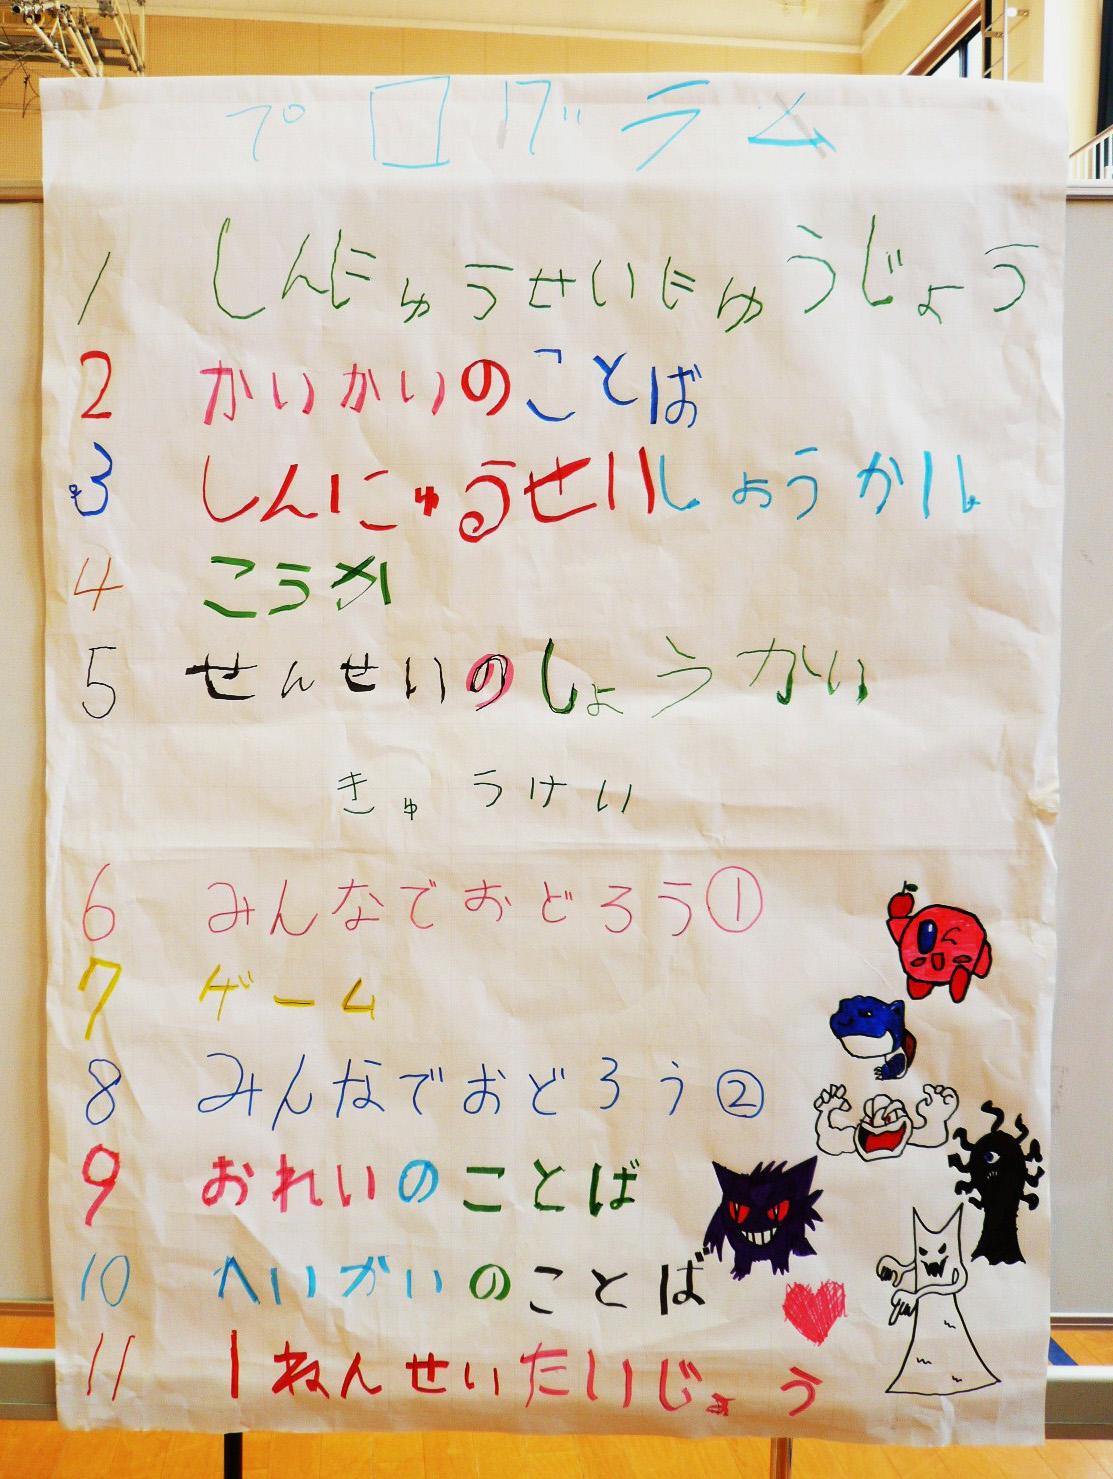 プログラム
1 しんにゅうせいにゅうじょう
2 かいかいのことば
3 しんにゅうせいしょうかい
4 こうか
5 せんせいのしょうかい
きゅうけい
6 みんなでおどろう①
7 ゲーム
8 みんなでおどろう②
9 おれいのことば
10 へいかいのことば
11 1ねんせいたいじょう